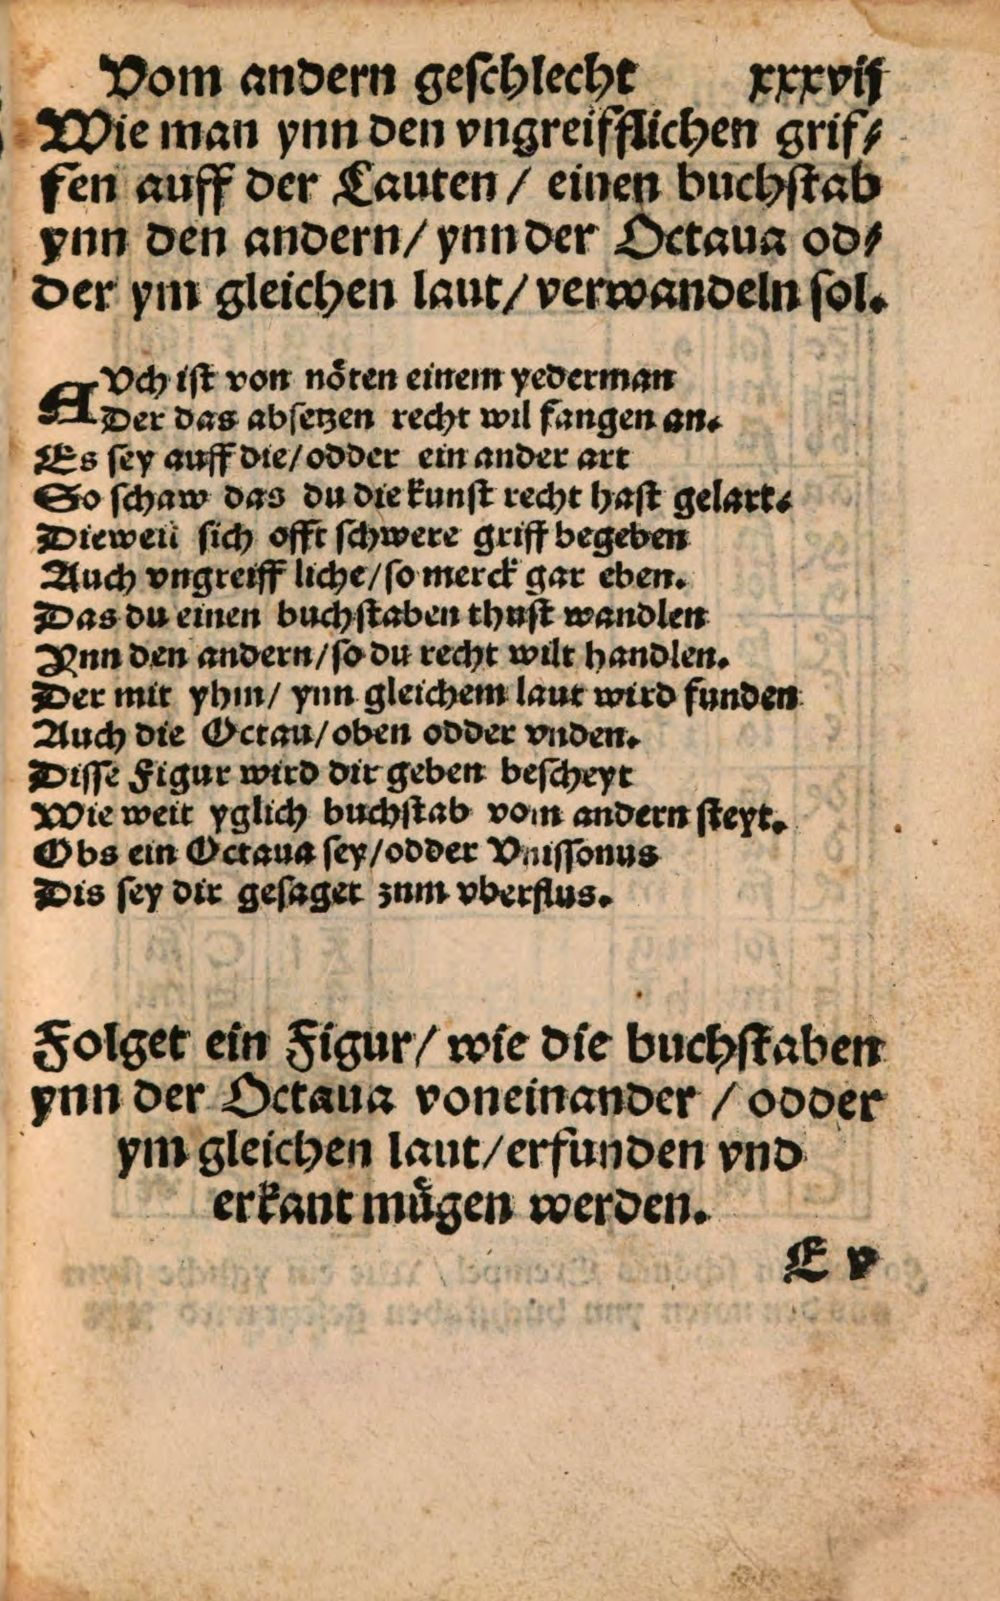 Vom andern geſchlecht xxxvij
Wie man ynn den vngreifflichen grif⸗
fen auff der Lauten / einen buchſtab
ynn den andern / ynn der Octaua od⸗
der ym gleichen laut / verwandeln ſol.
AVch iſt von nöten einem yederman
Der das abſetzen recht wil fangen an.
Es ſey auff die / odder ein ander art
So ſchaw das du die kunſt recht haſt gelart.
Dieweil ſich offt ſchwere griff begeben
Auch vngreiff liche / ſo merck gar eben.
Das du einen buchſtaben thuſt wandlen
Ynn den andern / ſo du recht wilt handlen.
Der mit yhm / ynn gleichem laut wird funden
Auch die Octau / oben odder vnden.
Diſſe Figur wird dir geben beſcheyt
Wie weit yglich buchſtab vom andern ſteyt.
Obs ein Octaua ſey / odder Vniſſonus
Dis ſey dir geſaget zum vberflus.
Folget ein Figur / wie die buchſtaben
ynn der Octaua voneinander / odder
ym gleichen laut / erfunden vnd
erkant muͤgen werden.
E v